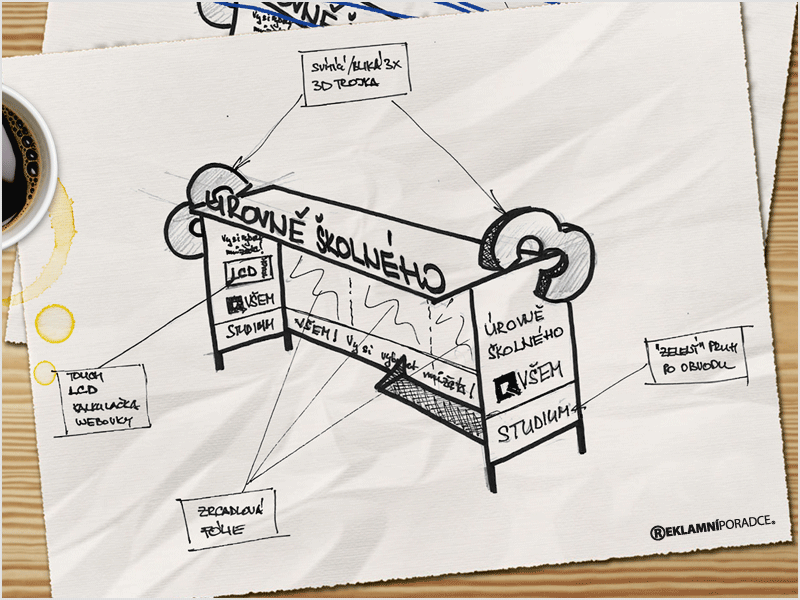 SVÍTÍCÍ/BLIKÁ 3X
3D TROJKA
ÚROVNĚ ŠKOLNÉHO
Vy si vybrat
můžete!
LCD
VŠEM
STUDIUM
VŠEM! Vy si vybrat můžete!
ÚROVNĚ
ŠKOLNÉHO
VŠEM
STUDIUM
"ZELENÝ" PRUH
PO OBVODU
TOUCH
LCD
KALKULAČKA
WEBOVKY
ZRCADLOVÁ
FÓLIE
REKLAMNÍPORADCE